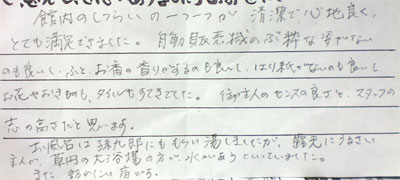 館内のしつらいの一つ一つが、清潔で心地良く、
とても満足できました。自動販売機のぶ粋な姿がない
のも良いし、ふと お香の香りがするのも良いし、はり紙がないのも良いし
お花やおきもの、タイルもすてきでした。 御主人のセンスの良さと、スタッフの
志の高さだと思います。
お風呂は孫九郎にももらい湯しましたが、 にうるさい
主人が、草円の大浴場の方が、水がいあうといていました。
また、 い宿です。